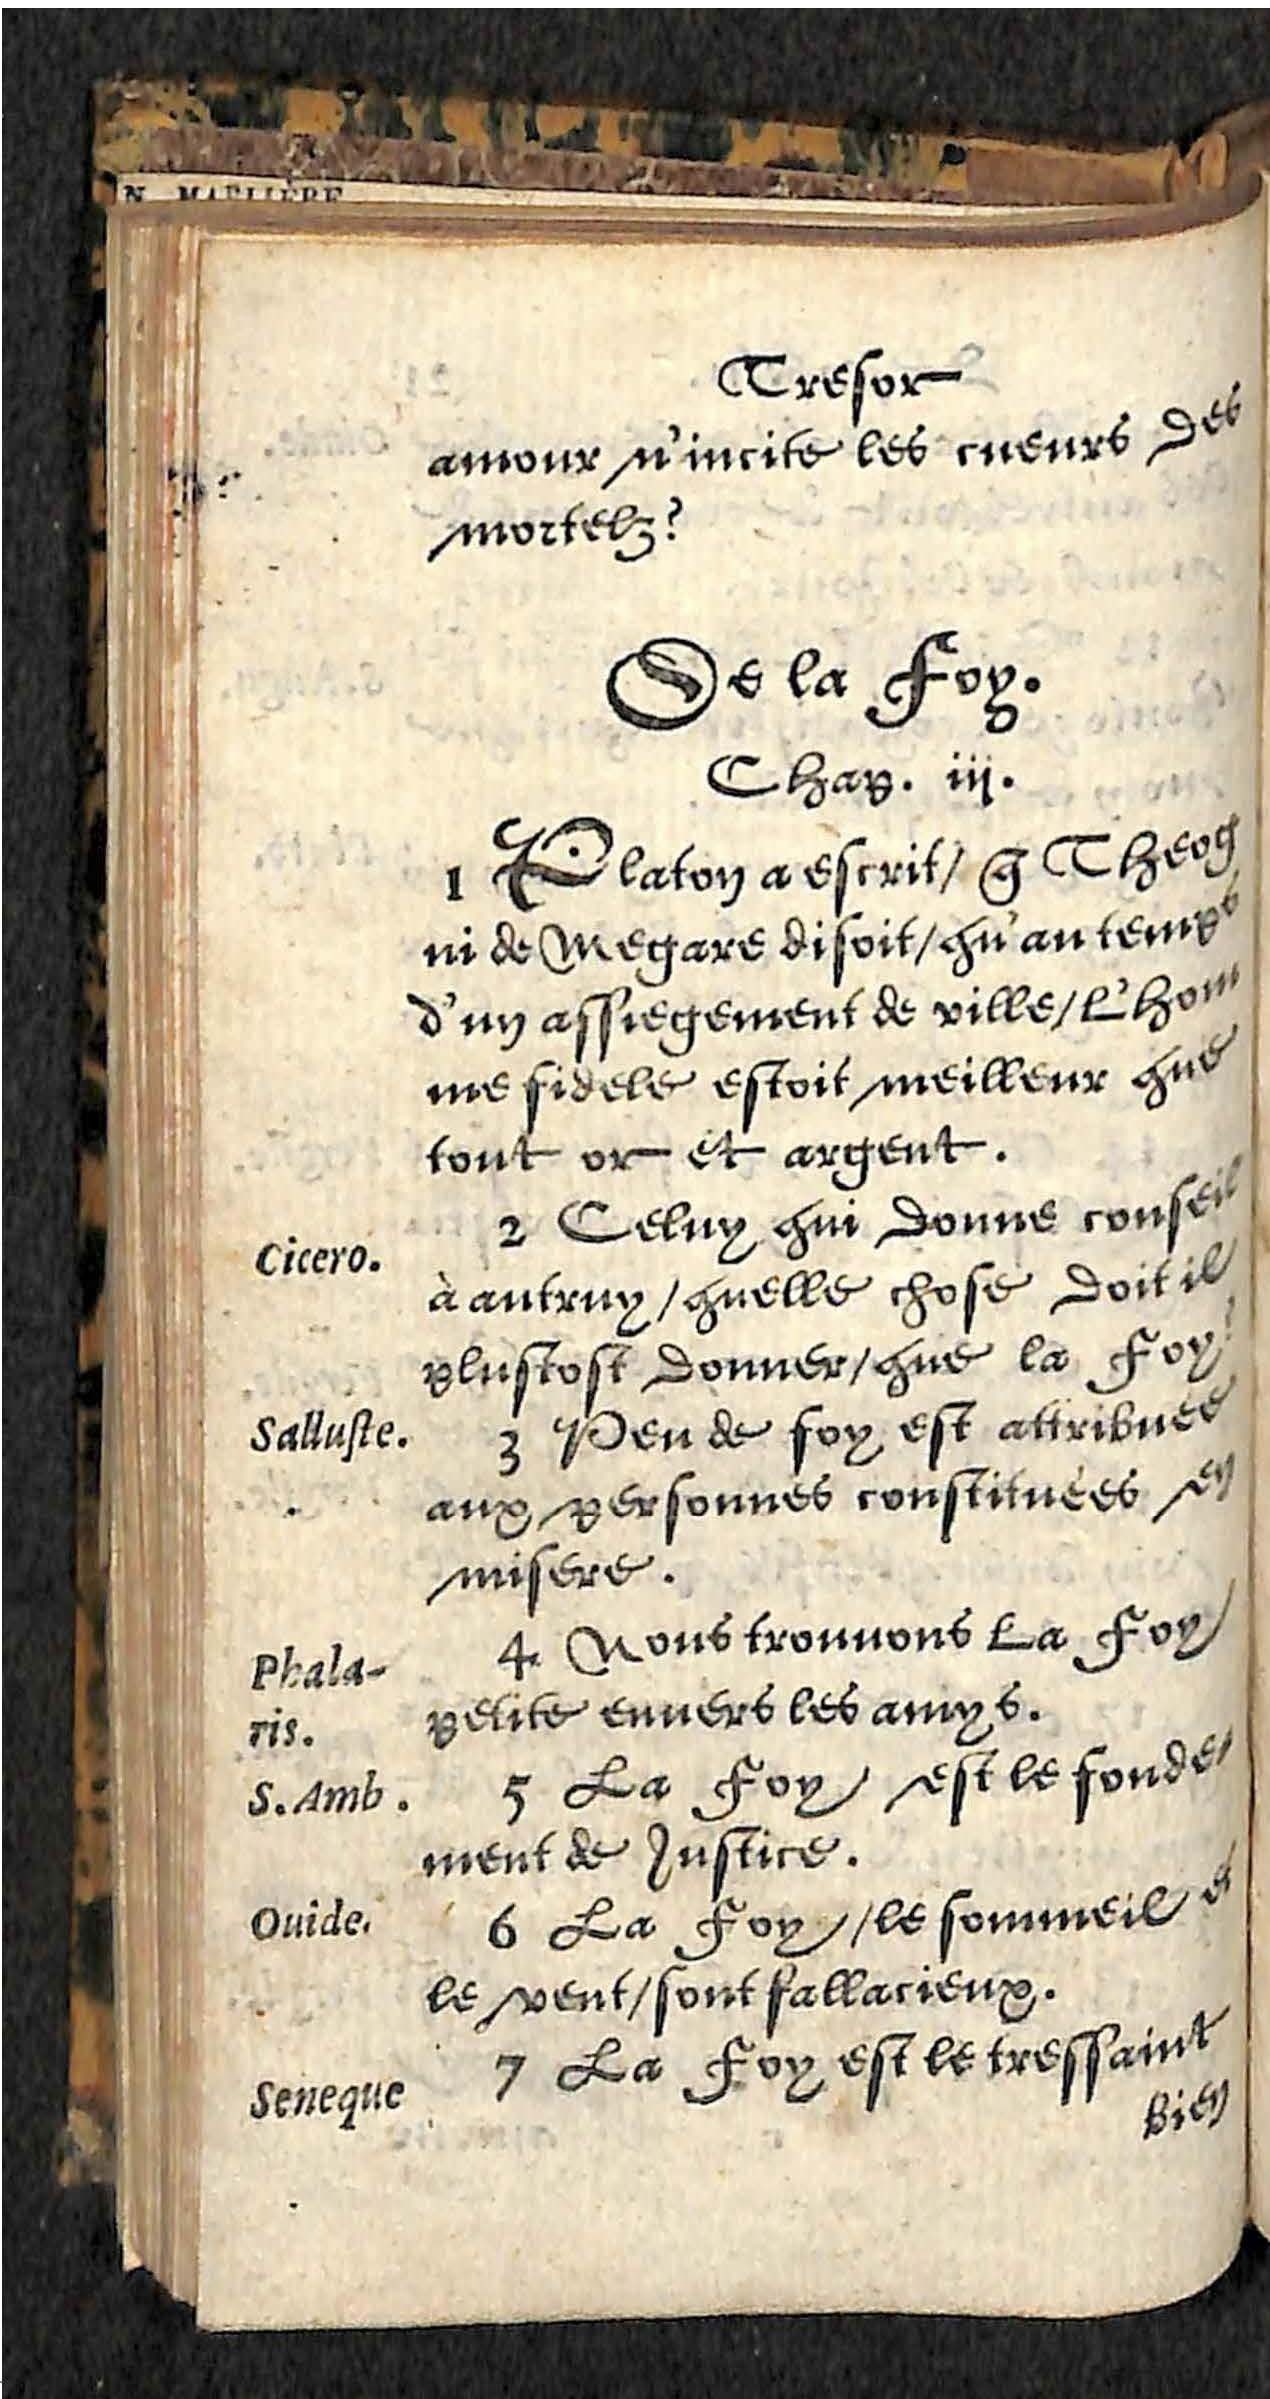 Tresor
amour n'incite les cueurs des
mortelz?
De la Foy.
Chap. iij.
1 Platon a escrit/ q̃ Theog
ni de Megare disoit/qu'au temps
d'un assiegement de ville/L'hom
me fidele estoit meilleur que
tout or et argent.
Cicero. 2 Celuy qui donne conseil
à autruy/quelle chose doit il
plustost donner/que la Foy?
Salluste. 3 Peu de foy est attribuée
aux personnes constituées en
misere.
Phala- 4 Nous trouuons La Foy
ris. petite enuers les amys.
S. Amb. 5 La Foy est le fonde-
ment de Justice.
Ouide. 6 La Foy/le sommeil et
le vent/sont fallacieux.
Seneque 7 La Foy est le tressaint
bien